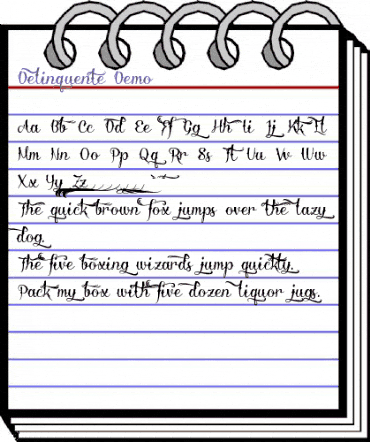 Delinquente Demo
Aa Bb Cc Dd Ee Ff Gg Hh Ii Jj Kk Ll
Mm Nn Oo Pp Qq Rr Ss Tt Uu Vv Ww
Xx Yy Zz
The quick brown fox jumps over the lazy
dog.
The five boxing wizards jump quickly.
Pack my box with five dozen liquor jugs.